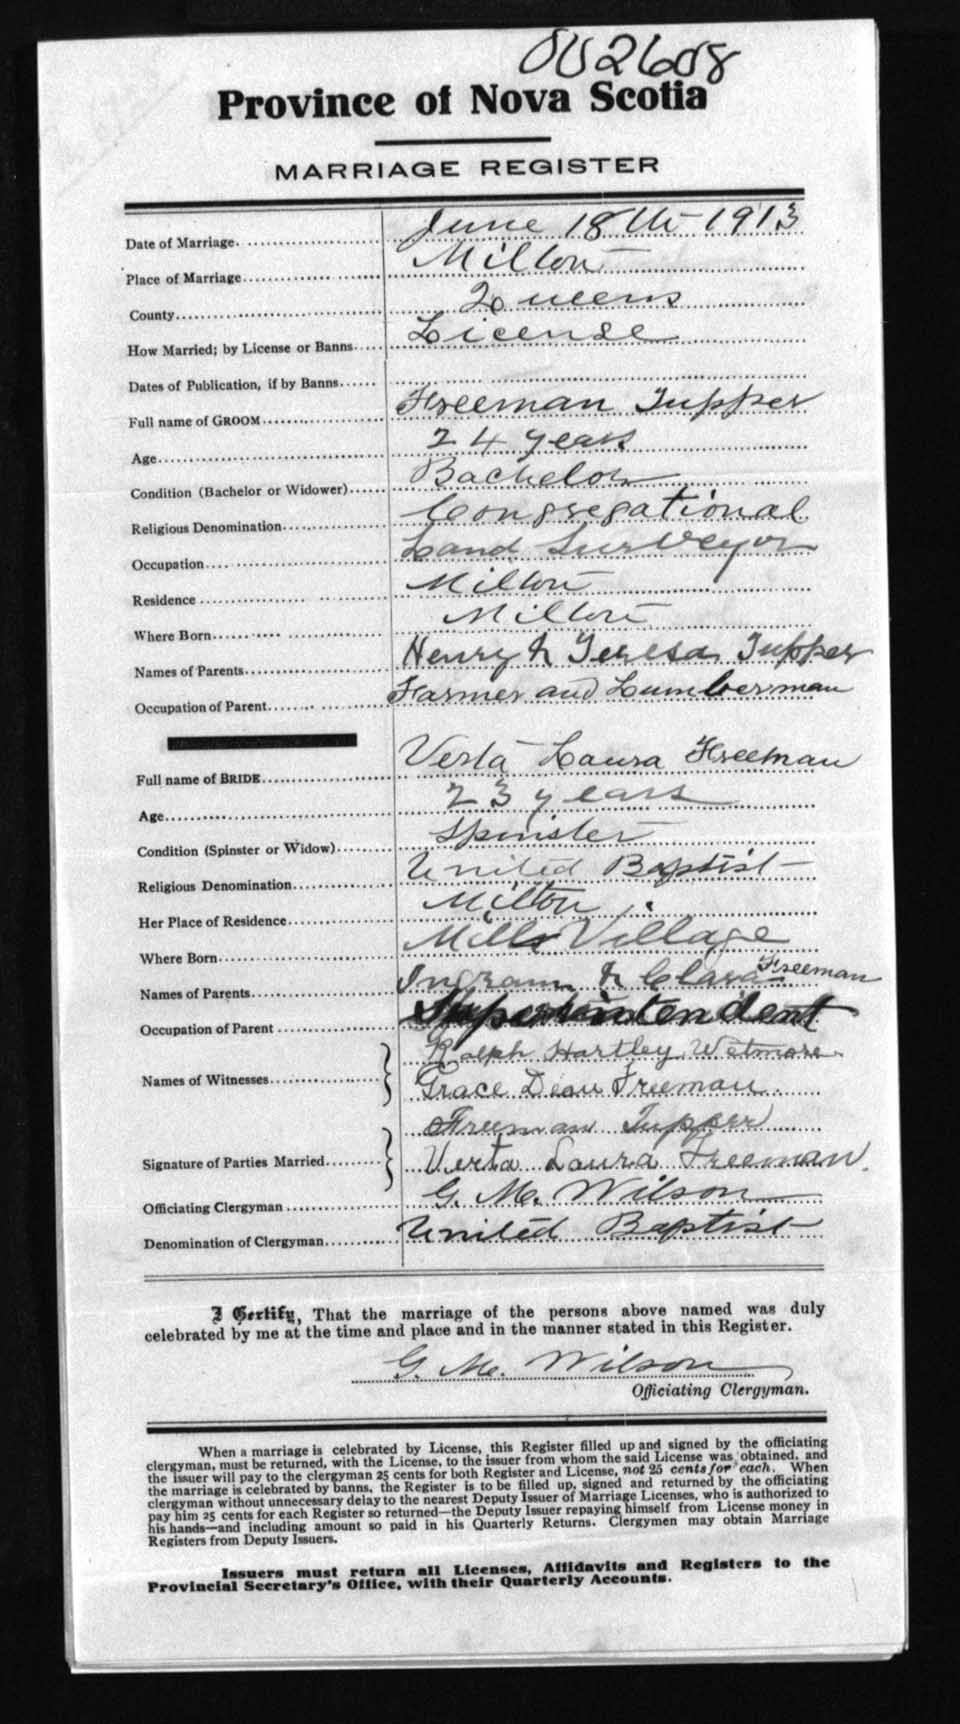 002608
Province of Nova Scotia
MARRIAGE REGISTER
Date of Marriage June 18th 1913
Place of Marriage Milton
County Queens
How Married; by License or Banns License
Dates of Publication, if by Banns
Full name of GROOM Freeman Tupper
Age 24 years
Condition (Bachelor or Widower) Bachelor
Religious Denomination Congregational
Occupation Land Surveyor
Residence Milton
Where Born Milton
Names of Parents Henry & Teresa Tupper
Occupation of Parent Farmer and Lumberman
Full name of BRIDE Verta Laura Freeman
Age 23 years
Condition (Spinster or Widow) Spinster
Religious Denomination United Baptist
Her Place of Residence Milton
Where Born Mills Village
Names of Parents Ingram & Clara Freeman
Occupation of Parent Superintendent
Names of Witnesses Ralph Hartley Wetmore
Grace Dean Freeman
Signature of Parties Married Freeman Tupper
Verta Laura Freeman.
Officiating Clergyman G. M. Wilson
Denomination of Clergyman United Baptist
I Certify, That the marriage of the persons above named was duly
celebrated by me at the time and place and in the manner stated in this Register.
G. M. Wilson
Officiating Clergyman.
When a marriage is celebrated by License, this Register filled up and signed by the officiating
clergyman, must be returned, with the License, to the issuer from whom the said License was obtained, and
the issuer will pay to the clergyman 25 cents for both Register and License, not 25 cents for each. When
the marriage is celebrated by banns, the Register is to be filled up, signed and returned by the officiating
clergyman without unnecessary delay to the nearest Deputy Issuer of Marriage Licenses, who is authorized to
pay him 25 cents for each Register so returned—the Deputy Issuer repaying himself from License money in
his hands—and including amount so paid in his Quarterly Returns. Clergymen may obtain Marriage
Registers from Deputy Issuers.
Issuers must return all Licenses, Affidavits and Registers to the
Provincial Secretary's Office, with their Quarterly Accounts.